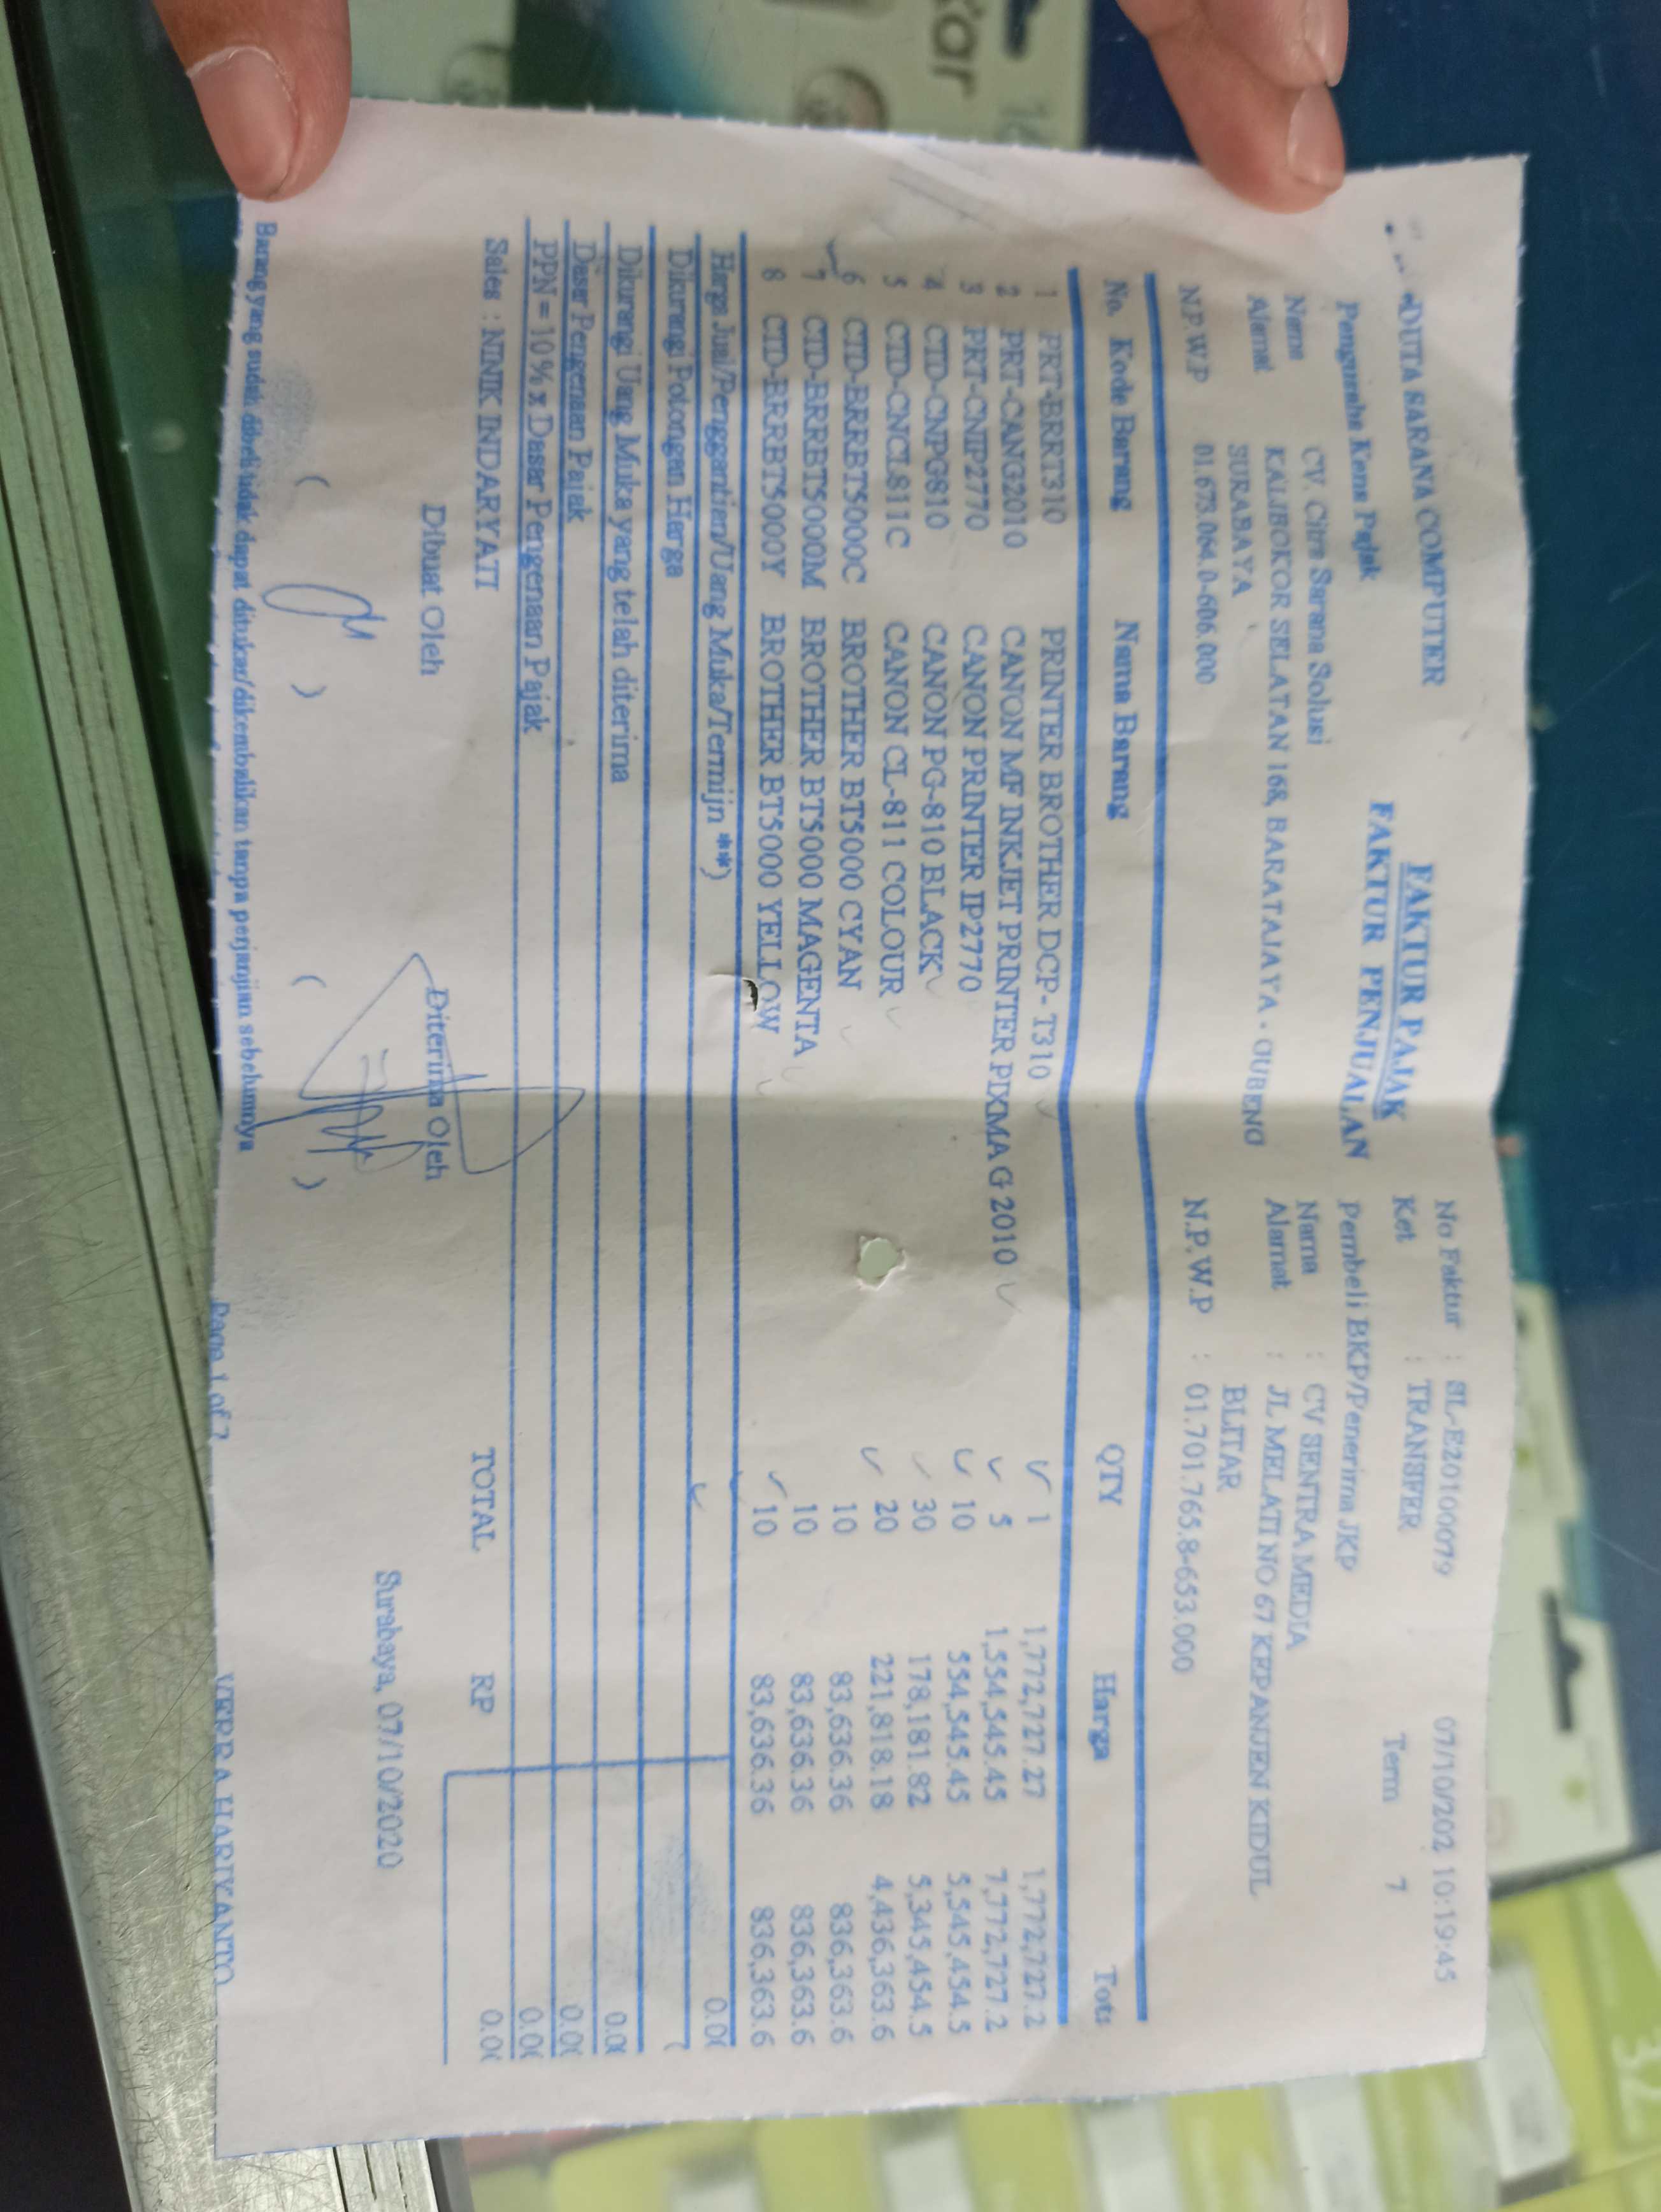 DUTA SARANA COMPUTER
FAKTUR PAJAK
FAKTUR PENJUALAN
No Faktur : SL-E20100079 07/10/202 10:19:45
Ket : TRANSFER Term 7
Pengusaha Kena Pajak
Nama CV. Citra Sarana Solusi
Alamat KALIBOKOR SELATAN 168, BARATAJAYA - GUBENG
SURABAYA
N.P.W.P 01.673.064.0-606.000
Pembeli BKP/Penerima JKP
Nama : CV SENTRA MEDIA
Alamat : JL MELATI NO 67 KEPANJEN KIDUL
BLITAR
N.P.W.P : 01.701.765.8-653.000
No. Kode Barang Nama Barang QTY Harga Tota
1 PRT-BRRT310 PRINTER BROTHER DCP- T310 1 1,772,727.27 1,772,727.2
2 PRT-CANG2010 CANON MF INKJET PRINTER PIXMA G 2010 5 1,554,545.45 7,772,727.2
3 PRT-CNIP2770 CANON PRINTER IP2770 10 554,545.45 5,545,454.5
4 CTD-CNPG810 CANON PG-810 BLACK 30 178,181.82 5,345,454.5
5 CTD-CNCL811C CANON CL-811 COLOUR 20 221,818.18 4,436,363.6
6 CTD-BRRBT5000C BROTHER BT5000 CYAN 10 83,636.36 836,363.6
7 CTD-BRRBT5000M BROTHER BT5000 MAGENTA 10 83,636.36 836,363.6
8 CTD-BRRBT5000Y BROTHER BT5000 YELLOW 10 83,636.36 836,363.6
Harga Jual/Penggantian/Uang Muka/Termijn **) 0.00
Dikurangi Potongan Harga
Dikurangi Uang Muka yang telah diterima 0.00
Dasar Pengenaan Pajak 0.00
PPN = 10% x Dasar Pengenaan Pajak 0.00
Sales : NINIK INDARYATI TOTAL RP 0.00
Dibuat Oleh Diterima Oleh Surabaya, 07/10/2020
( ) ( )
Barang yang sudah dibeli tidak dapat ditukar/dikembalikan tanpa perjanjian sebelumnya
Page 1 of ? VERRA HARIYANTO